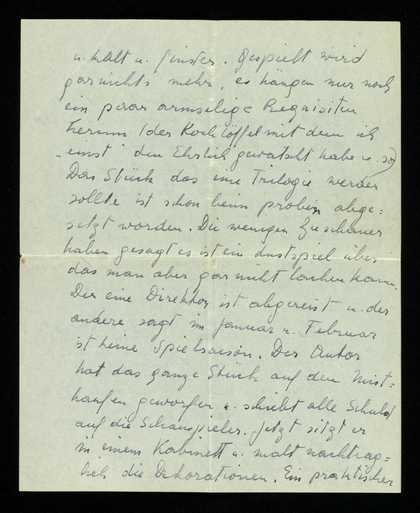 u. kalt u. finster. Gespielt wird
garnichts mehr, es hängen nur noch
ein paar armselige Requisiten
herum (der Kochlöffel mit dem ich
"einst" den Ehrlich gewatscht habe u. so)
Das Stück das eine Trilogie werden
sollte ist schon beim proben abge=
setzt worden. Die wenigen Zuschauer
haben gesagt es ist ein Lustspiel über
das man aber gar nicht lachen kann.
Der eine Direktor ist abgereist u. der
andere sagt im Januar u. Februar
ist keine Spielsaison. Der Autor
hat das ganze Stück auf den Mist=
haufen geworfen u. schiebt alle Schuld
auf die Schauspieler. Jetzt sitzt er
in einem Kabinett u. malt nachträg=
lich die Dekorationen. Ein praktischer